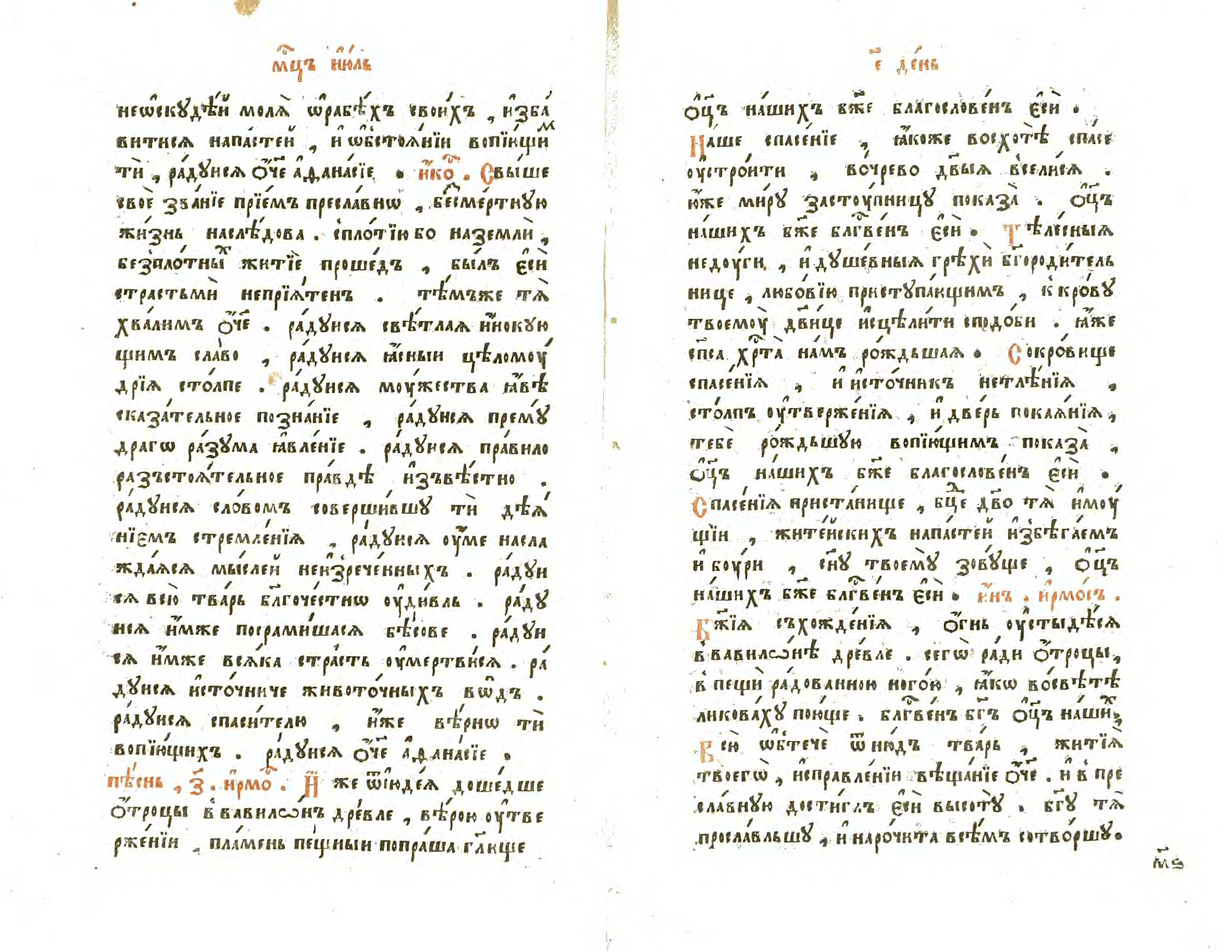 мц҃ъ їю́ль
неѡскꙋдѣ́й молѧ̀ ѡ҆рабѣ́хъ свои́хъ , и҆зба́
витисѧ напа́стей , и҆ ѡ҆бстоѧ́нїи вопїю́щи
тѝ , ра́дꙋисѧ ѻ҆́ч҃е а҆ѳана́сїе . и҆ко . Свы́ше
своѐ зва́нїе прїе́мъ пресла́внѡ , бе́смертнꙋю
жи́знь наслѣ́дова . спло́тїю бо наземлѝ ,
безпло́тны житїѐ проше́дъ , бы́лъ є҆сѝ
страстьмѝ непрїѧ́тенъ . тѣ́мъже тѧ̀
хва́лимъ ѻ҆́ч҃е . ра́дꙋисѧ свѣ́тлаѧ и҆́нокꙋю
щимъ сла́во , ра́дꙋисѧ ꙗ҆́сныи цѣломоу́
дрїѧ сто́лпе . ра́дꙋисѧ моу́жества ꙗ҆́вѣ
сказа́тельное позна́нїе , ра́дꙋисѧ премꙋ́
драгѡ ра́зꙋма ꙗ҆вле́нїе . ра́дꙋисѧ пра́вило
разъстоѧ́тельное пра́вдѣ и҆звѣ́стно .
ра́дꙋисѧ сло́вомъ соверши́вшꙋ тѝ дѣѧ́
нїемъ стремле́нїѧ , ра́дꙋисѧ оу҆́ме насла
жда́ѧсѧ мы́слей неи҆зрече́нныхъ . ра́дꙋи
сѧ всю̀ тва́рь бл҃гоче́стнѡ оу҆ди́вль . ра́дꙋ
исѧ и҆́мже посрами́шасѧ бѣ́сове . ра́дꙋи
сѧ и҆́мже всѧ́ка стра́сть оу҆мертви́сѧ . ра́
дꙋисѧ и҆сто́чниче живото́чныхъ во́дъ .
ра́дꙋисѧ спаси́телю , и҆́же вѣ́рнѡ тѝ
вопїю́щихъ . ра́дꙋисѧ ѻ҆́ч҃е а҆ѳана́сїе .
пѣ́снь , з҃ . і҆рмо . И҆́ же ѿїюде́ѧ доше́дше
ѻ҆́троцы в̾вавилѡ́нъ дре́вле , вѣ́рою оу҆тве
рже́нїи , пла́мень пе́щныи попра́ша гл҃юще
є҃ де́нь
ѻ҆ц҃ъ на́шихъ бж҃е благослове́нъ є҆сѝ .
На́ше спасе́нїе , ꙗ҆́коже восхотѣ̀ спа́се
оу҆стро́ити , во́чрево дв҃ыѧ всели́сѧ .
ю҆́же ми́рꙋ засто́упницꙋ показа̀ . ѻ҆ц҃ъ
на́шихъ бж҃е бл҃гве́нъ є҆сѝ . Тѣле́сныѧ
недоу́ги , и҆ дꙋше́вныѧ грѣхѝ бг҃ороди́тель
нице , любо́вїю пристꙋпа́ющимъ , к̾кро́вꙋ
твоемоу̀ дв҃ице и҆сцѣли́ти сподо́би . ꙗ҆́же
сп҃са хрⷭ҇та̀ на́мъ ро́ждьшаѧ . Сокро́вище
спасе́нїѧ , и҆ и҆сто́чникъ нетлѣ́нїѧ ,
сто́лпъ оу҆тверже́нїѧ , и҆ две́рь покаѧ́нїѧ ,
тебѐ ро́ждьшꙋю вопїю́щимъ показа̀ ,
ѻ҆ц҃ъ на́шихъ бж҃е благослове́нъ є҆сѝ .
Спасе́нїѧ приста́нище , бц҃де дв҃о тѧ̀ и҆моу́
щїи , жите́йскихъ напа́стей и҆збѣга́емъ
и҆ боу́ри , сн҃ꙋ твоемꙋ̀ зовꙋ́ще , ѻ҆ц҃ъ
на́шихъ бж҃е бл҃гве́нъ є҆сѝ . и҆́нъ . і҆рмо́съ .
Бж҃їѧ съхожде́нїѧ , ѻ҆́гнь оу҆стыдѣ́сѧ
в̾вавилѡ́нѣ дре́вле . сегѡ̀ ра́ди ѻ҆́троцы ,
в̾ пещѝ ра́дованною ного́ю , ꙗ҆́кѡ во́свѣтѣ
ликова́хꙋ пою́ще . бл҃гве́нъ бг҃ъ ѻ҆ц҃ъ на́шихъ
Всю̀ ѡ҆бтечѐ ѿню́дъ тва́рь , житїѧ̀
твоегѡ̀ , и҆справле́нїи вѣща́нїе ѻ҆́ч҃е . и҆ в̾ пре
сла́внꙋю дости́глъ є҆сѝ высотꙋ̀ . бг҃ꙋ тѧ̀
просла́вльшꙋ , и҆ нарочи́та всѣ́мъ сотво́ршꙋ .
м҃ѕ